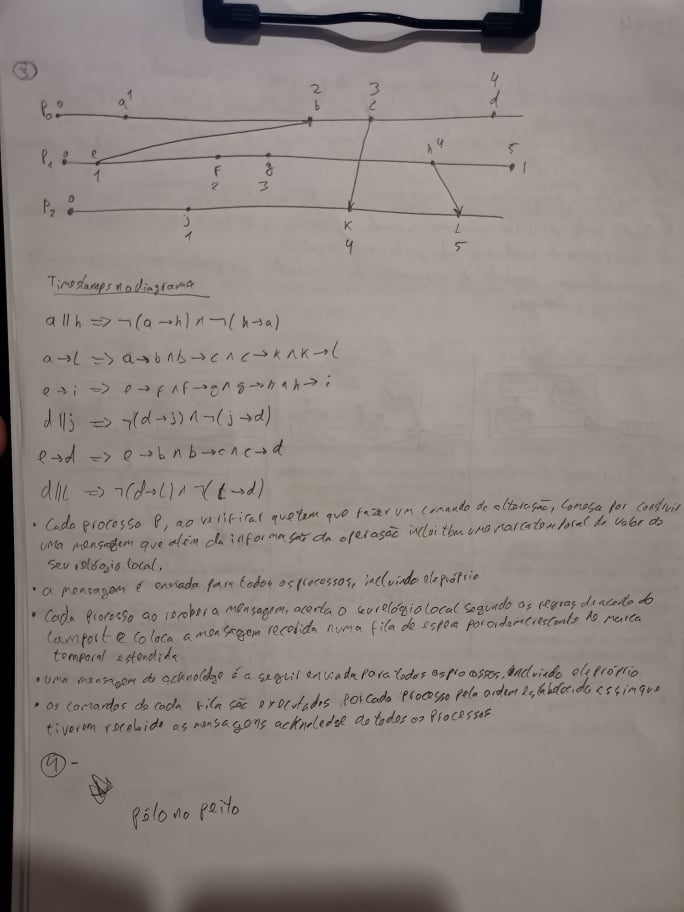 ③
2 3 4
P₀ 0 a 1 b c d
P₁ 0 e f g h 4 5 i
1 2 3
P₂ 0 j K L
1 4 5
Timestamps no diagrama
a || h => ¬(a → h) ∧ ¬(h → a)
a → l => a → b ∧ b → c ∧ c → k ∧ k → l
e → i => e → f ∧ f → g ∧ g → h ∧ h → i
d || j => ¬(d → j) ∧ ¬(j → d)
e → d => e → b ∧ b → c ∧ c → d
d || l => ¬(d → l) ∧ ¬(l → d)
• Cada processo P, ao verificar que tem que fazer um comando de alteração, começa por construir
uma mensagem que além da informação da operação inclui tbm uma marca temporal do valor do
seu relógio local.
• a mensagem é enviada para todos os processos, incluindo ele próprio
• Cada processo ao receber a mensagem, acerta o seu relógio local segundo as regras de acerto do
Lamport e coloca a mensagem recebida numa fila de espera por ordem crescente de marca
temporal estendida.
• uma mensagem de acknoldge é a seguir enviada para todos os processos, incluindo ele próprio.
• os comandos de cada fila são executados por cada processo pela ordem estabelecida assim que
tiverem recebido as mensagens acknoledge de todos os processos.
④ -
pólo no peito